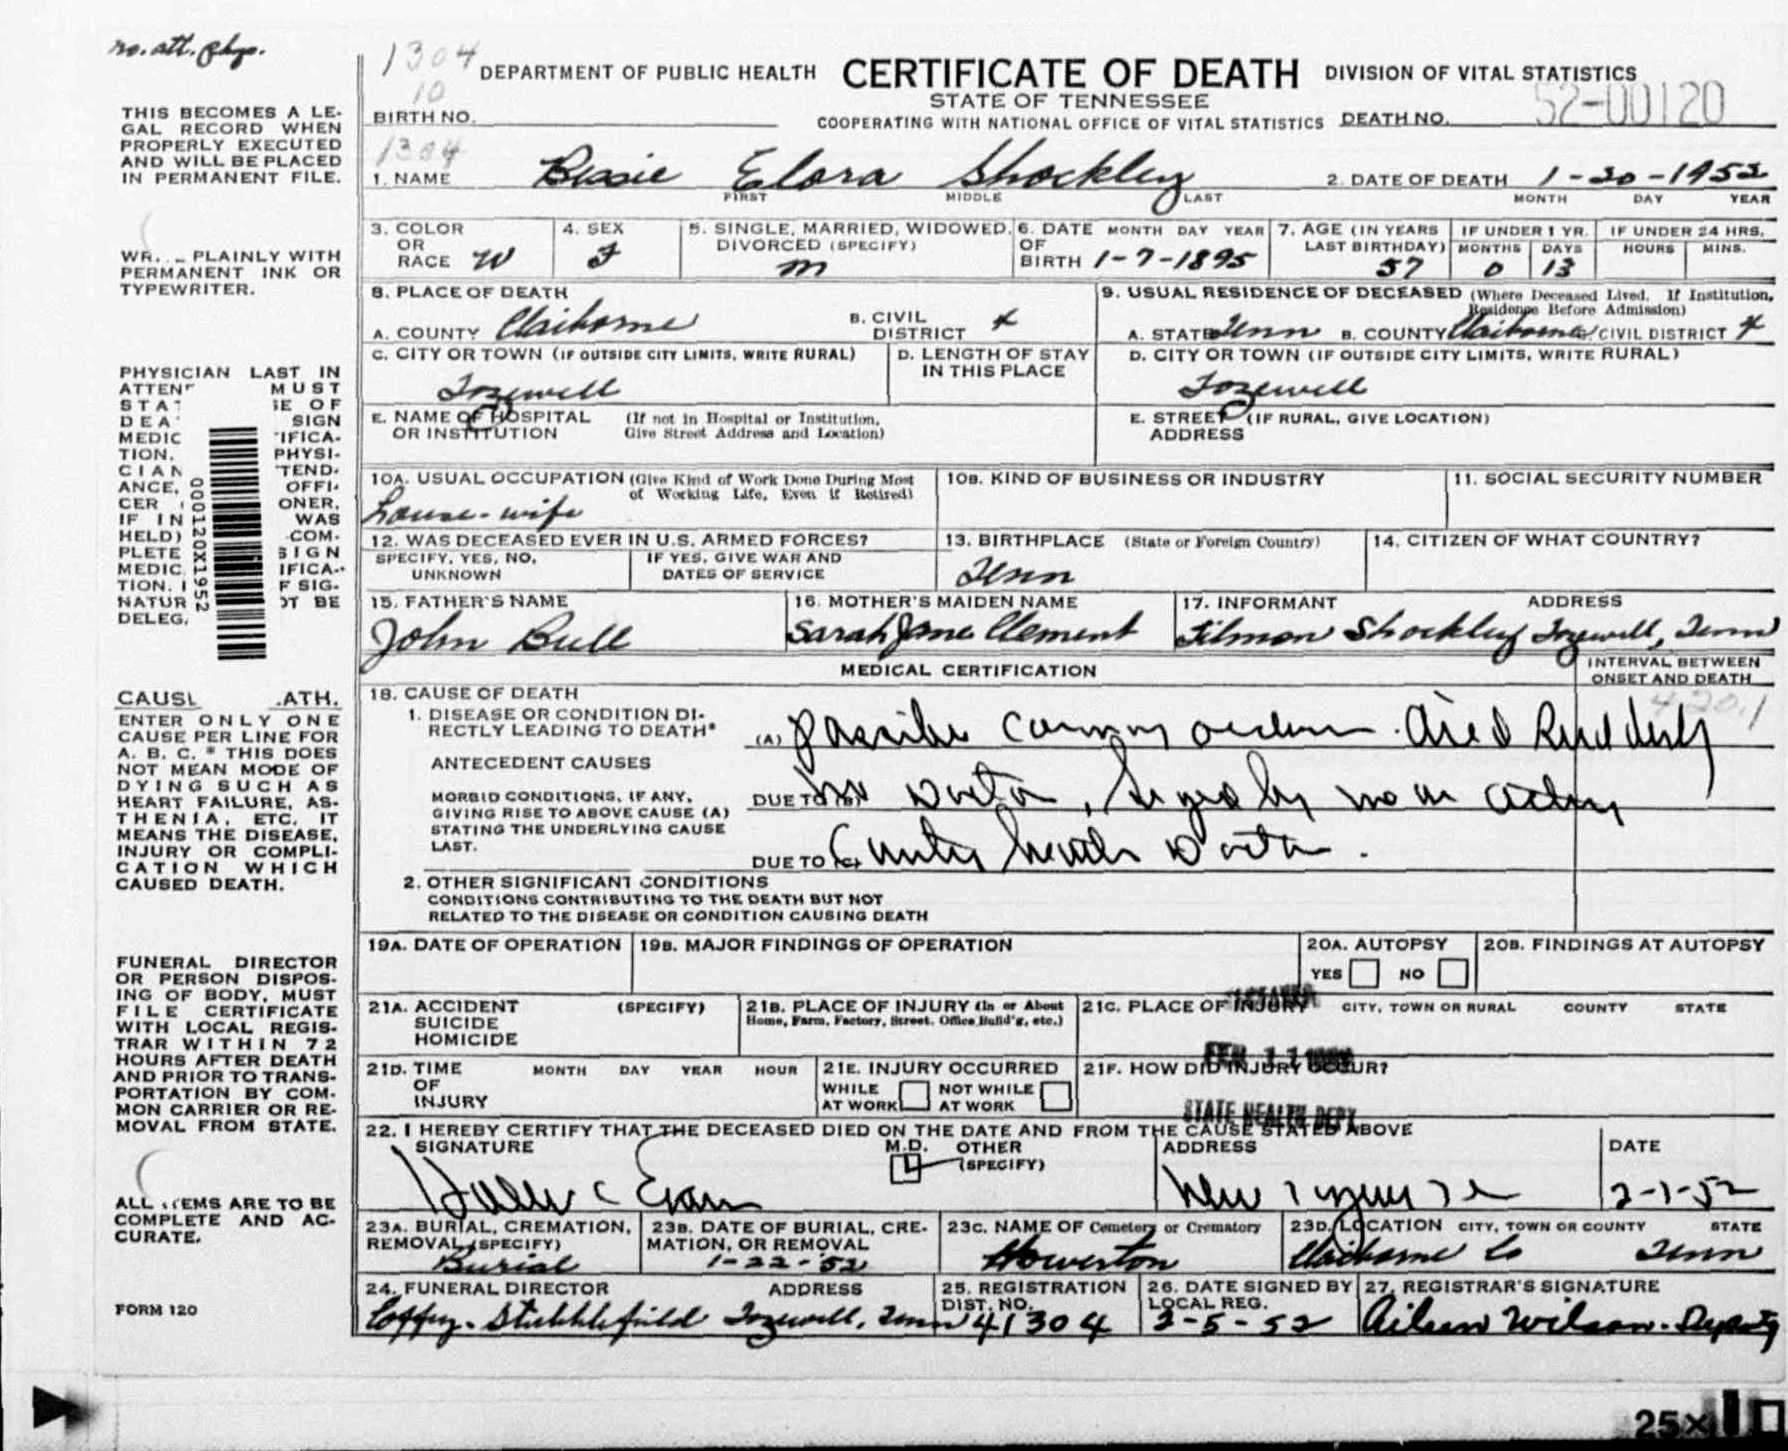 no. att. phys.
1304
10
DEPARTMENT OF PUBLIC HEALTH CERTIFICATE OF DEATH DIVISION OF VITAL STATISTICS
STATE OF TENNESSEE
COOPERATING WITH NATIONAL OFFICE OF VITAL STATISTICS
BIRTH NO. DEATH NO. 52-00120
1304
1. NAME Bessie Elora Shockley 2. DATE OF DEATH 1-20-1952
FIRST MIDDLE LAST MONTH DAY YEAR
3. COLOR OR RACE W
4. SEX F
5. SINGLE, MARRIED, WIDOWED, DIVORCED (SPECIFY) M
6. DATE OF BIRTH MONTH DAY YEAR 1-7-1895
7. AGE (IN YEARS LAST BIRTHDAY) 57
IF UNDER 1 YR. MONTHS 0 DAYS 13
IF UNDER 24 HRS. HOURS MINS.
8. PLACE OF DEATH
A. COUNTY Claiborne B. CIVIL DISTRICT 4
C. CITY OR TOWN (IF OUTSIDE CITY LIMITS, WRITE RURAL)
Tazewell
D. LENGTH OF STAY IN THIS PLACE
E. NAME OF HOSPITAL OR INSTITUTION (If not in Hospital or Institution, Give Street Address and Location)
9. USUAL RESIDENCE OF DECEASED (Where Deceased Lived. If Institution, Residence Before Admission)
A. STATE Tenn B. COUNTY Claiborne C. CIVIL DISTRICT 4
D. CITY OR TOWN (IF OUTSIDE CITY LIMITS, WRITE RURAL)
Tazewell
E. STREET ADDRESS (IF RURAL, GIVE LOCATION)
10A. USUAL OCCUPATION (Give Kind of Work Done During Most of Working Life, Even if Retired)
house-wife
10B. KIND OF BUSINESS OR INDUSTRY
11. SOCIAL SECURITY NUMBER
12. WAS DECEASED EVER IN U.S. ARMED FORCES?
SPECIFY, YES, NO, UNKNOWN
IF YES, GIVE WAR AND DATES OF SERVICE
13. BIRTHPLACE (State or Foreign Country)
Tenn
14. CITIZEN OF WHAT COUNTRY?
15. FATHER'S NAME
John Bull
16. MOTHER'S MAIDEN NAME
Sarah Jane Clement
17. INFORMANT ADDRESS
Tilmon Shockley Tazewell, Tenn
MEDICAL CERTIFICATION
INTERVAL BETWEEN ONSET AND DEATH
420.1
18. CAUSE OF DEATH
1. DISEASE OR CONDITION DIRECTLY LEADING TO DEATH*
(A) possible coronary occlusion. died Suddenly
ANTECEDENT CAUSES
MORBID CONDITIONS, IF ANY, GIVING RISE TO ABOVE CAUSE (A) STATING THE UNDERLYING CAUSE LAST.
DUE TO (B) no Doctor, Signed by me as acting
DUE TO (C) County health Doctor.
2. OTHER SIGNIFICANT CONDITIONS
CONDITIONS CONTRIBUTING TO THE DEATH BUT NOT
RELATED TO THE DISEASE OR CONDITION CAUSING DEATH
19A. DATE OF OPERATION
19B. MAJOR FINDINGS OF OPERATION
20A. AUTOPSY
YES NO
20B. FINDINGS AT AUTOPSY
21A. ACCIDENT SUICIDE HOMICIDE (SPECIFY)
21B. PLACE OF INJURY (In or About Home, Farm, Factory, Street, Office Build'g, etc.)
21C. PLACE OF INJURY CITY, TOWN OR RURAL COUNTY STATE
21D. TIME OF INJURY MONTH DAY YEAR HOUR
21E. INJURY OCCURRED
WHILE AT WORK NOT WHILE AT WORK
21F. HOW DID INJURY OCCUR?
FEB 11
STATE HEALTH DEPT
22. I HEREBY CERTIFY THAT THE DECEASED DIED ON THE DATE AND FROM THE CAUSE STATED ABOVE
SIGNATURE M.D. OTHER (SPECIFY) ADDRESS DATE
C Evans New Tazewell 2-1-52
23A. BURIAL, CREMATION, REMOVAL (SPECIFY)
Burial
23B. DATE OF BURIAL, CREMATION, OR REMOVAL
1-22-52
23C. NAME OF Cemetery or Crematory
Howerton
23D. LOCATION CITY, TOWN OR COUNTY STATE
Claiborne Co Tenn
24. FUNERAL DIRECTOR ADDRESS
Coffey-Stubblefield Tazewell, Tenn
25. REGISTRATION DIST. NO.
41304
26. DATE SIGNED BY LOCAL REG.
2-5-52
27. REGISTRAR'S SIGNATURE
Aileen Wilson-Deputy
THIS BECOMES A LE-
GAL RECORD WHEN
PROPERLY EXECUTED
AND WILL BE PLACED
IN PERMANENT FILE.
PLAINLY WITH
PERMANENT INK OR
TYPEWRITER.
PHYSICIAN LAST IN
MUST
OF
SIGN
000120X1952
ENTER ONLY ONE
CAUSE PER LINE FOR
A. B. C. * THIS DOES
NOT MEAN MODE OF
DYING SUCH AS
HEART FAILURE, AS-
THENIA, ETC. IT
MEANS THE DISEASE,
INJURY OR COMPLI-
CATION WHICH
CAUSED DEATH.
FUNERAL DIRECTOR
OR PERSON DISPOS-
ING OF BODY, MUST
FILE CERTIFICATE
WITH LOCAL REGIS-
TRAR WITHIN 72
HOURS AFTER DEATH
AND PRIOR TO TRANS-
PORTATION BY COM-
MON CARRIER OR RE-
MOVAL FROM STATE.
ALL ITEMS ARE TO BE
COMPLETE AND AC-
CURATE.
FORM 120
25X